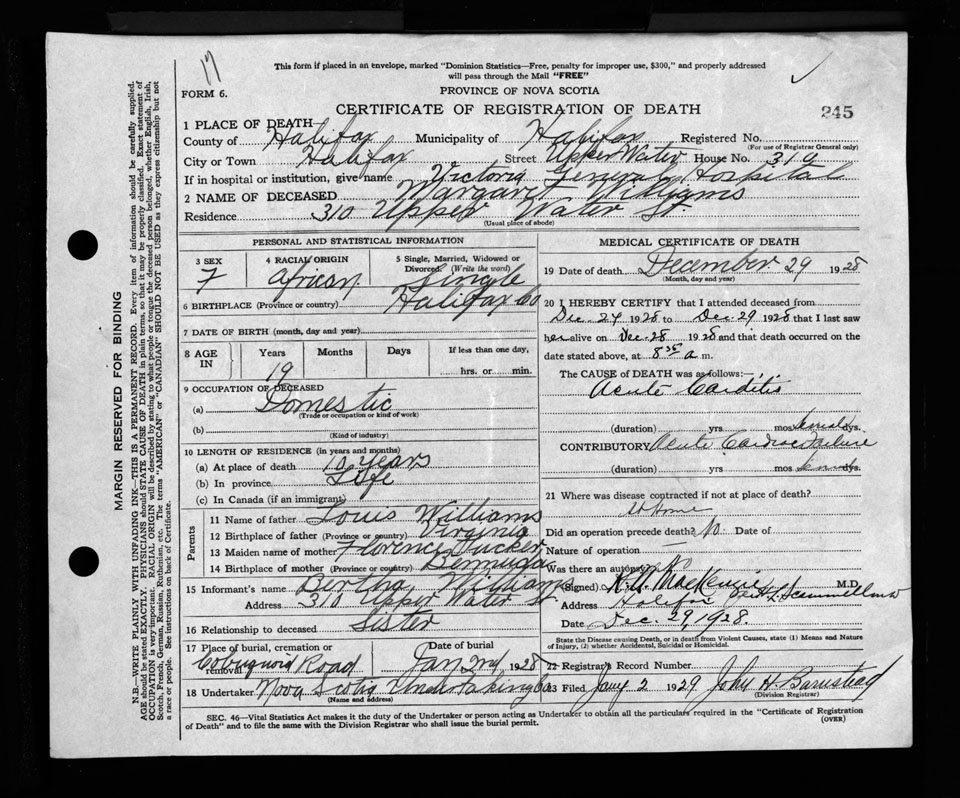 17
This form if placed in an envelope, marked "Dominion Statistics—Free, penalty for improper use, $300," and properly addressed
will pass through the Mail "FREE"
FORM 6.
PROVINCE OF NOVA SCOTIA
CERTIFICATE OF REGISTRATION OF DEATH
245
1 PLACE OF DEATH
County of Halifax Municipality of Halifax Registered No.
(For use of Registrar General only)
City or Town Halifax Street Upper Water House No. 310
If in hospital or institution, give name Victoria General Hospital
2 NAME OF DECEASED Margaret Williams
Residence 310 Upper Water St.
(Usual place of abode)
PERSONAL AND STATISTICAL INFORMATION
3 SEX F
4 RACIAL ORIGIN African
5 Single, Married, Widowed or Divorced (Write the word) Single
6 BIRTHPLACE (Province or country) Halifax Co
7 DATE OF BIRTH (month, day and year)
8 AGE IN Years Months Days If less than one day,
19 hrs. or min.
9 OCCUPATION OF DECEASED
(a) Domestic
(Trade or occupation or kind of work)
(b)
(Kind of industry)
10 LENGTH OF RESIDENCE (in years and months)
(a) At place of death 10 years
(b) In province Life
(c) In Canada (if an immigrant)
Parents
11 Name of father Louis Williams
12 Birthplace of father (Province or country) Virginia
13 Maiden name of mother Florence Tucker
14 Birthplace of mother (Province or country) Bermuda
15 Informant's name Bertha Williams
Address 310 Upper Water St
16 Relationship to deceased Sister
17 Place of burial, cremation or removal Cobequid Road
Date of burial Jan 2nd 1928
18 Undertaker Nova Scotia Undertaking Co
(Name and address)
MEDICAL CERTIFICATE OF DEATH
19 Date of death December 29 1928
(Month, day and year)
20 I HEREBY CERTIFY that I attended deceased from
Dec. 24 1928 to Dec. 29 1928 that I last saw
her alive on Dec. 28 1928 and that death occurred on the
date stated above, at 8 a m.
The CAUSE OF DEATH was as follows:—
Acute Carditis
(duration) yrs. mos. dys.
CONTRIBUTORY Acute Cardiac Failure
(duration) yrs. mos. dys.
21 Where was disease contracted if not at place of death?
at Home
Did an operation precede death? No Date of
Nature of operation —
Was there an autopsy? No
(Signed) K. A. MacKenzie M.D.
Address Halifax
Date Dec. 29, 1928.
State the Disease causing Death, or in death from Violent Causes, state (1) Means and Nature
of Injury, (2) whether Accidental, Suicidal or Homicidal.
22 Registrar's Record Number
23 Filed Jany 2 1929 John H Barnstead
(Division Registrar)
SEC. 46—Vital Statistics Act makes it the duty of the Undertaker or person acting as Undertaker to obtain all the particulars required in the "Certificate of Registration
of Death" and to file the same with the Division Registrar who shall issue the burial permit.
(OVER)
MARGIN RESERVED FOR BINDING
N.B.—WRITE PLAINLY WITH UNFADING INK—THIS IS A PERMANENT RECORD. Every item of information should be carefully supplied.
AGE should be stated EXACTLY. PHYSICIANS should STATE CAUSE OF DEATH in plain terms, so that it may be properly classified. Exact statement of
OCCUPATION is very important. RACIAL ORIGIN will be described by stating to what people or tongue the deceased person belonged, whether English, Irish,
Scotch, French, German, Russian, Ruthenian, etc. The terms "AMERICAN" or "CANADIAN" SHOULD NOT BE USED as they express citizenship but not
a race or people. See instructions on back of Certificate.